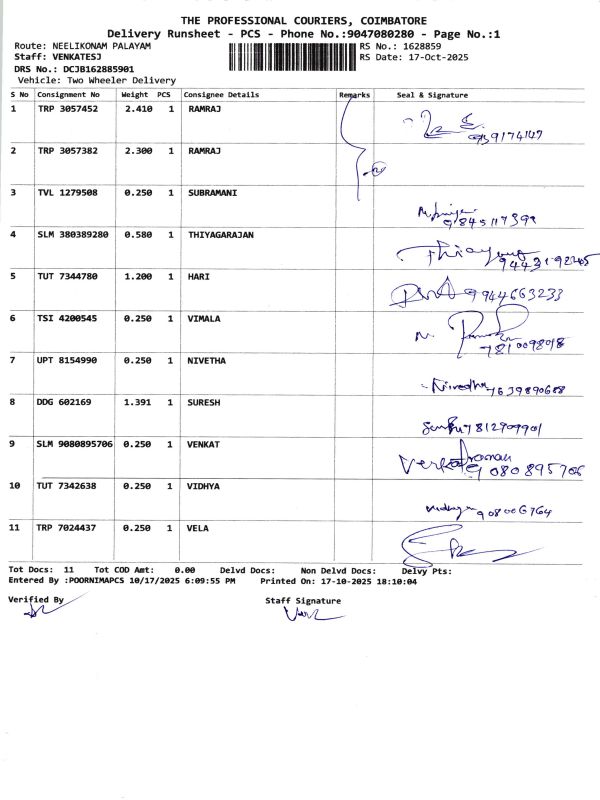 THE PROFESSIONAL COURIERS, COIMBATORE
Delivery Runsheet - PCS - Phone No.:9047080280 - Page No.:1
Route: NEELIKONAM PALAYAM RS No.: 1628859
Staff: VENKATESJ RS Date: 17-Oct-2025
DRS No.: DCJB162885901
Vehicle: Two Wheeler Delivery
S No Consignment No Weight PCS Consignee Details Remarks Seal & Signature
1 TRP 3057452 2.410 1 RAMRAJ
2 TRP 3057382 2.300 1 RAMRAJ
3 TVL 1279508 0.250 1 SUBRAMANI
4 SLM 380389280 0.580 1 THIYAGARAJAN
5 TUT 7344780 1.200 1 HARI 9944663233
6 TSI 4200545 0.250 1 VIMALA
7 UPT 8154990 0.250 1 NIVETHA
Nivedha 7639890688
8 DDG 602169 1.391 1 SURESH
7812909901
9 SLM 9080895706 0.250 1 VENKAT
9080895706
10 TUT 7342638 0.250 1 VIDHYA
11 TRP 7024437 0.250 1 VELA
Tot Docs: 11 Tot COD Amt: 0.00 Delvd Docs: Non Delvd Docs: Delvy Pts:
Entered By :POORNIMAPCS 10/17/2025 6:09:55 PM Printed On: 17-10-2025 18:10:04
Verified By Staff Signature